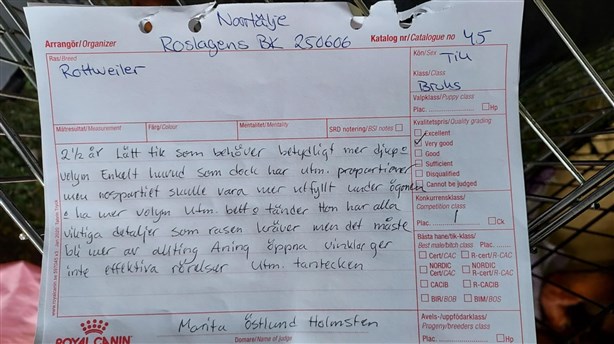 Norrtälje
Arrangör/Organizer
Roslagens BK 250606
Katalog nr/Catalogue no 45
Ras/Breed
Rottweiler
Kön/Sex
Tik
Klass/Class
Bruks
Valpklass/Puppy class
Plac. Hp
Mätresultat/Measurement
Färg/Colour
Mentalitet/Mentality
SRD notering/BSI notes
Kvalitetspris/Quality grading
Excellent
Very good
Good
Sufficient
Disqualified
Cannot be judged
2 1/2 år Lätt tik som behöver betydligt mer djup o
volym Enkelt huvud som dock har utm. proportioner
men nospartiet skulle vara mer utfyllt under ögonen
o ha mer volym Utm. bett o tänder Hon har alla
viktiga detaljer som rasen kräver men det måste
bli mer av allting Aning öppna vinklar ger
inte effektiva rörelser Utm. tantecken
Konkurrensklass/
Competition class
Plac. 1 Ck
Bästa hane/tik-klass/
Best male/bitch class Plac.
Cert/CAC R-cert/R-CAC
NORDIC Cert/CAC NORDIC R-Cert/R-CAC
CACIB R-CACIB
BIR/BOB BIM/BOS
Avels-/uppfödarklass/
Progeny/breeders class
Plac. Hp
Marita Östlund Holmsten
Domare/Name of judge
ROYAL CANIN